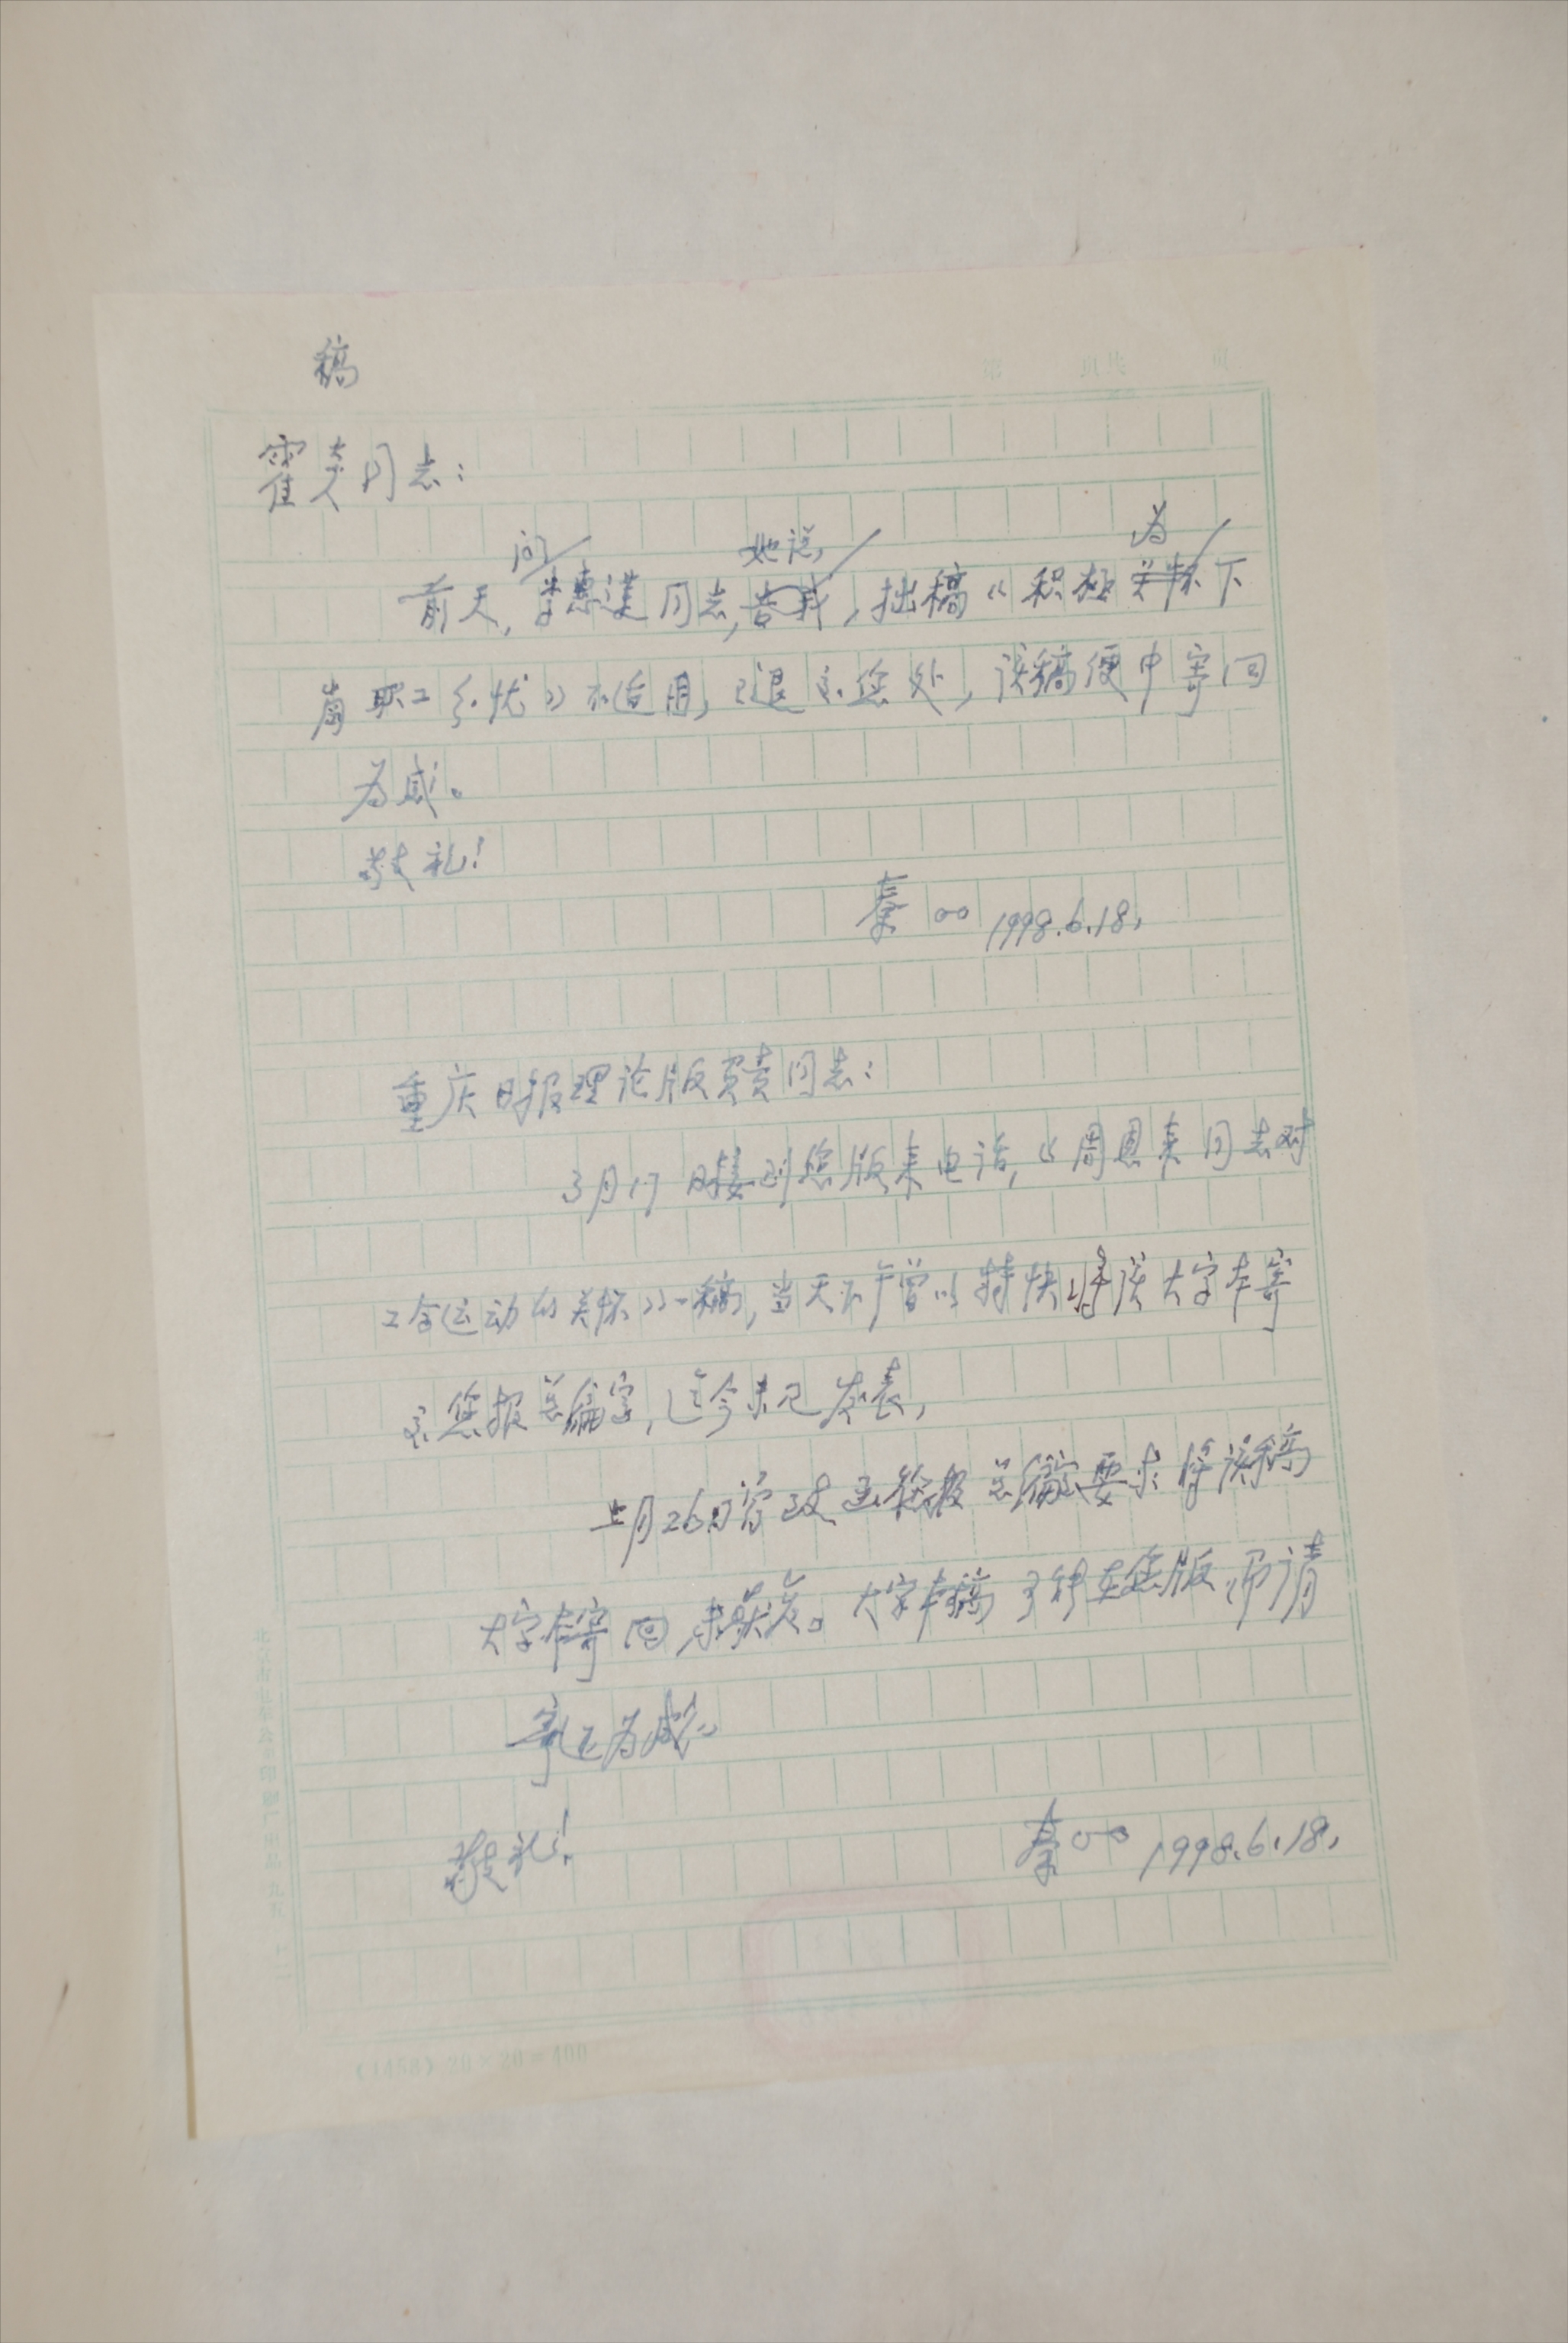 稿
第 页共 页
霍 同志：
问 她说， 为
前天，李惠 同志，告我，拙稿《积极关怀下
岗职工 忧》不适用，已退 您处，该稿便中寄回
为感。
敬礼！
秦○○ 1998.6.18.
重庆日报理论版负责同志：
3月17日接到您版来电话，《周恩来同志对
工会运动的关怀》一稿，当天下午曾以特快将该大字本寄
交您报总编室，迄今未见发表，
上月26日曾 您报总编室要求将该稿
大字本寄回未获复。大字本稿 在您版，即请
寄还为感。
敬礼！
秦○○ 1998.6.18.
(1458) 20×20=400